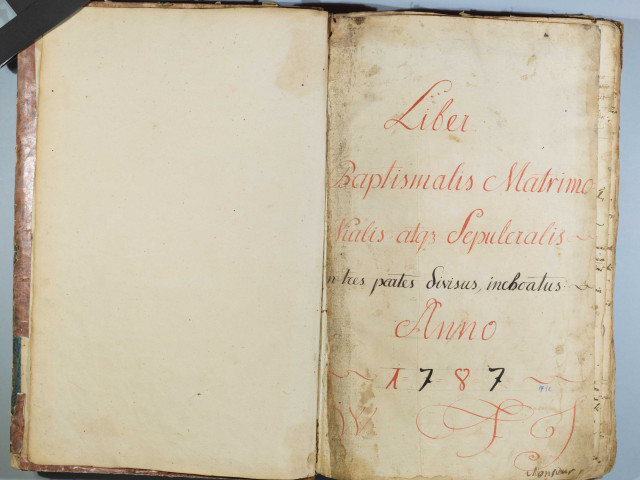 Liber
Baptismalis Matrimo
nialis atqȝ Sepulcralis
in tres partes divisus, inchoatus
Anno
1787